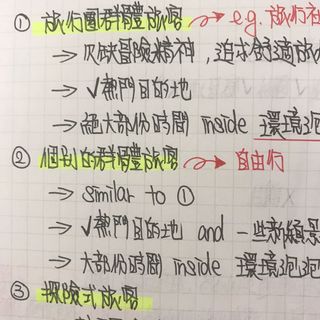 ① 旅行團群體旅客 → e.g. 旅行社
→ 欠缺冒險精神, 追求舒適放
→ √熱門目的地
→ 絕大部份時間 inside 環境泡
② 個別的群體旅客 → 自由行
→ similar to ①
→ √熱門目的地 and 一些新穎景
→ 大部份時間 inside 環境泡泡
③ 探險式旅客